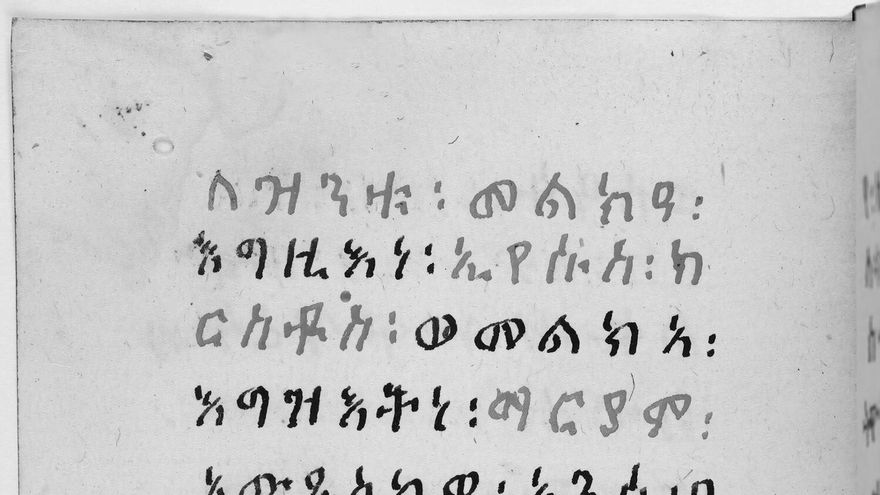 ለዝንቱ፡ መልክዓ፡
እግዚእነ፡ ኢየሱስ፡ ክ
ርስቶስ፡ ወመልክአ፡
እግዝእትነ፡ ማርያም፡